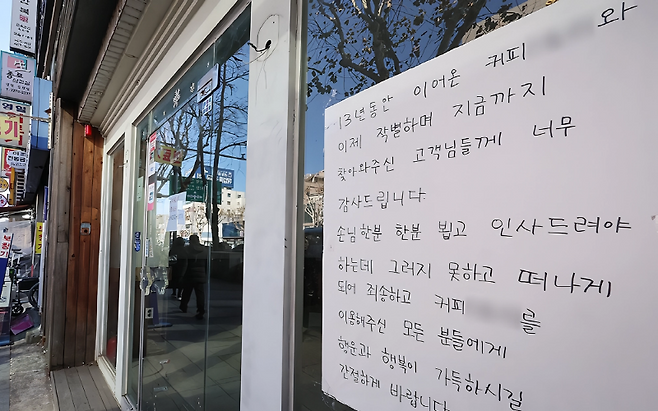 13년동안 이어온 커피 와
이제 작별하며 지금까지
찾아와주신 고객님들께 너무
감사드립니다.
손님한분 한분 뵙고 인사드려야
하는데 그러지 못하고 떠나게
되어 죄송하고 커피 를
이용해주신 모든 분들에게
행운과 행복이 가득하시길
간절하게 바랍니다.